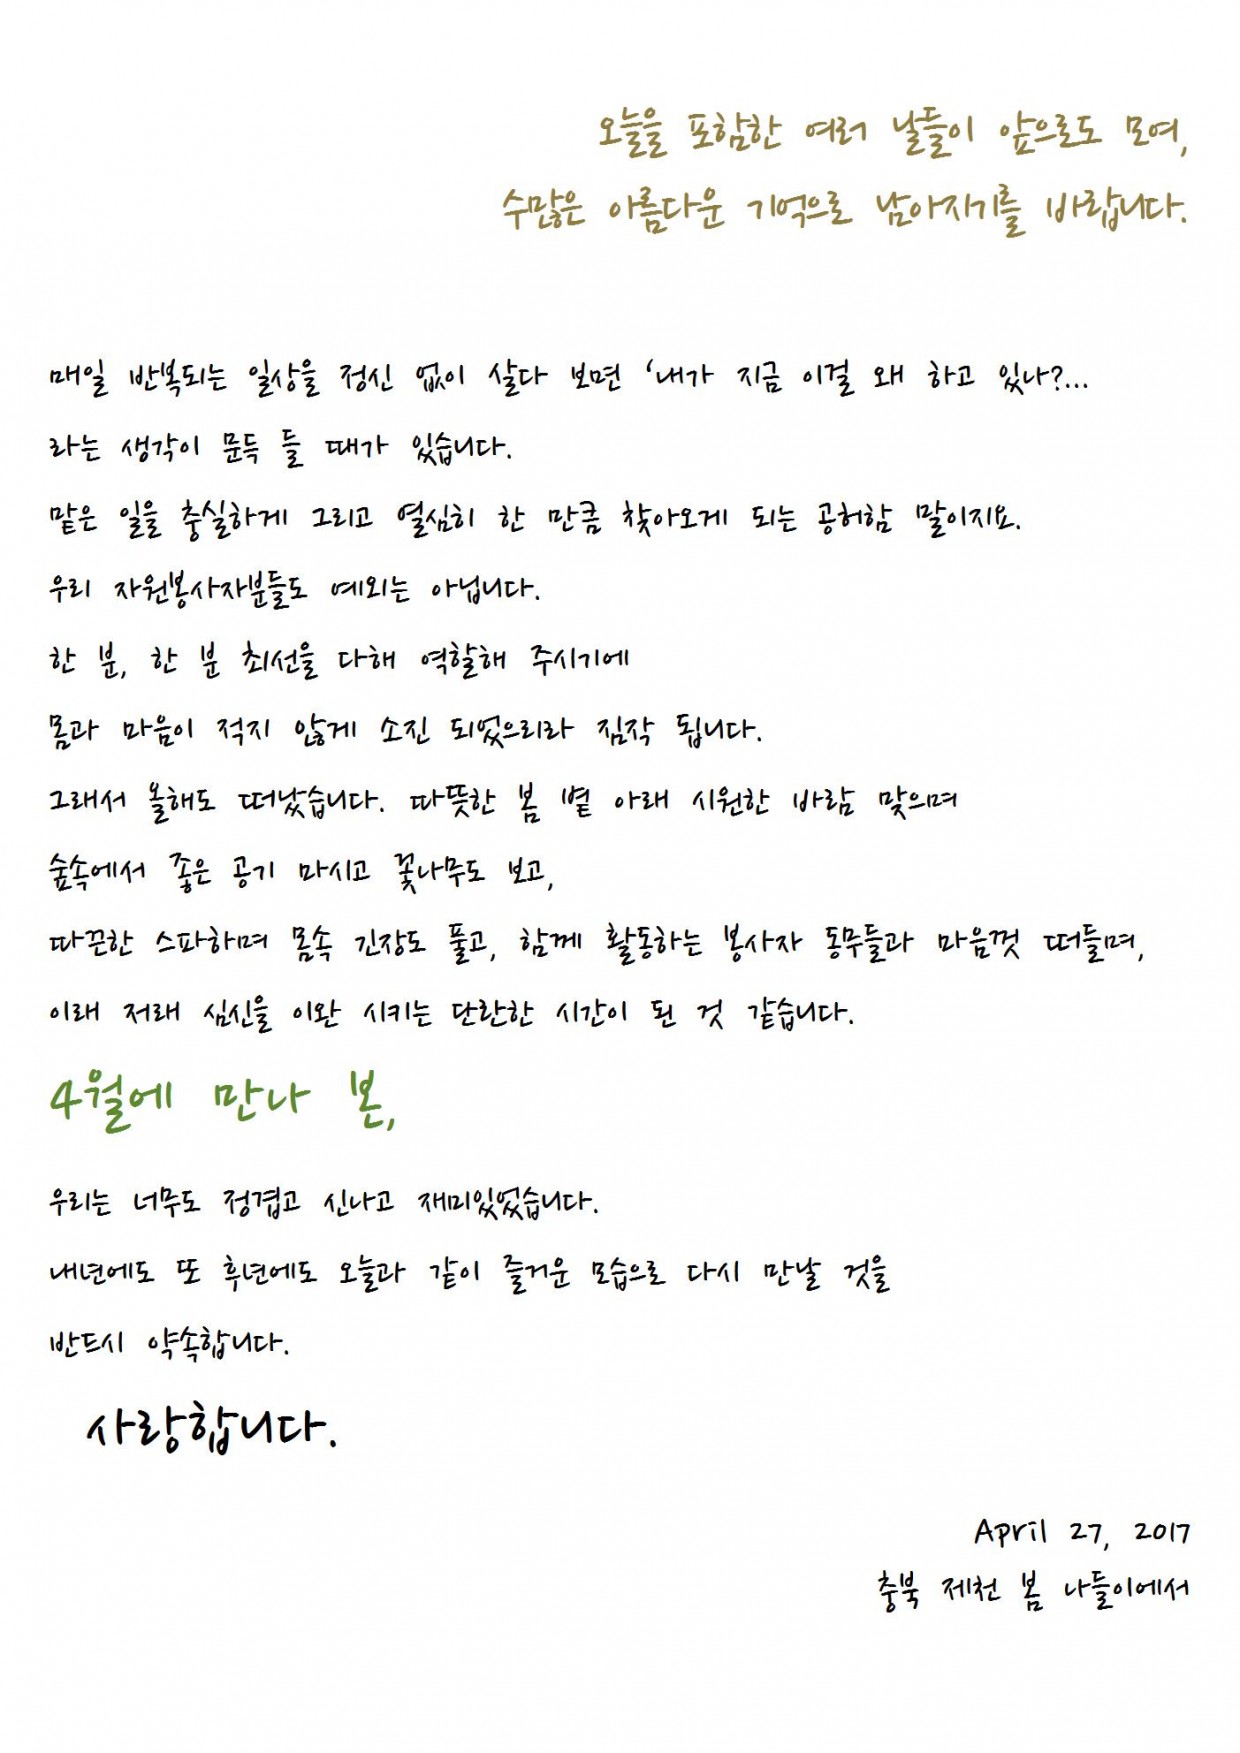 오늘을 포함한 여러 날들이 앞으로도 모여,
수많은 아름다운 기억으로 남아지기를 바랍니다.
매일 반복되는 일상을 정신 없이 살다 보면 ‘내가 지금 이걸 왜 하고 있나?...
라는 생각이 문득 들 때가 있습니다.
맡은 일을 충실하게 그리고 열심히 한 만큼 찾아오게 되는 공허함 말이지요.
우리 자원봉사자분들도 예외는 아닙니다.
한 분, 한 분 최선을 다해 역할해 주시기에
몸과 마음이 적지 않게 소진 되었으리라 짐작 됩니다.
그래서 올해도 떠났습니다. 따뜻한 봄 볕 아래 시원한 바람 맞으며
숲속에서 좋은 공기 마시고 꽃나무도 보고,
따끈한 스파하며 몸속 긴장도 풀고, 함께 활동하는 봉사자 동무들과 마음껏 떠들며,
이래 저래 심신을 이완 시키는 단란한 시간이 된 것 같습니다.
4월에 만나 본,
우리는 너무도 정겹고 신나고 재미있었습니다.
내년에도 또 후년에도 오늘과 같이 즐거운 모습으로 다시 만날 것을
반드시 약속합니다.
사랑합니다.
April 27, 2017
충북 제천 봄 나들이에서